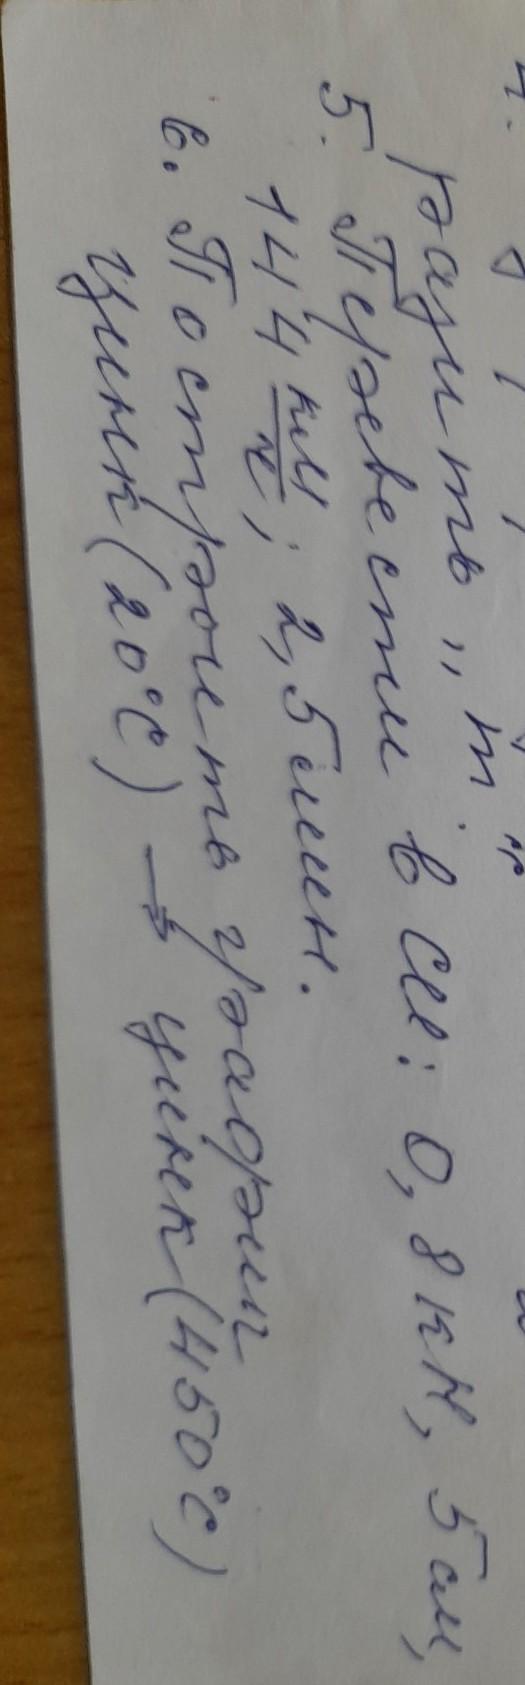 4.
разить "m"
5. Перевести в СИ: 0,8 кН, 5 см,
144 км/ч; 2,5 мин.
6. Построить график
цинк (20°С) → цинк (450°С)